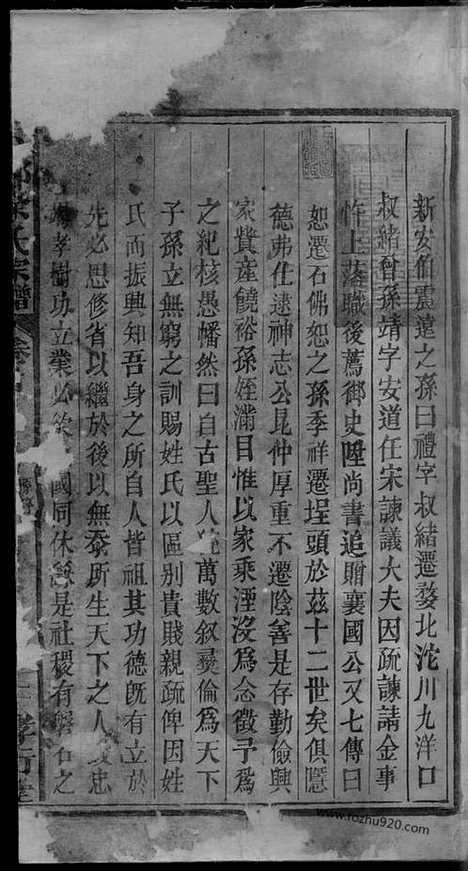 新安伯震遠之孫曰禮字叔緒遷婺北沱川九洋口
叔緒曾孫靖字安道任宋諫議大夫因疏諫請金事
忤上落職後薦御史陞尚書追贈襄國公又七傳曰
恕遷石佛恕之孫季祥遷埕頭於茲十二世矣俱隱
德弗仕逺神志公昆仲厚重不遷陰善是存勤儉興
家貲產饒裕孫姪滿目惟以家乘湮沒為念徵予為
之紀核愚幡然曰自古聖人 萬數叙彛倫為天下
子孫立無窮之訓賜姓氏以區別貴賤親疏俾因姓
氏而振興知吾身之所自人皆祖其功德旣有立於
先必思修省以繼於後以無忝所生天下之人 忠
 孝樹功立業必欲 國同休 是社稷有磐石之
 氏宗譜
www.fozhu920.com